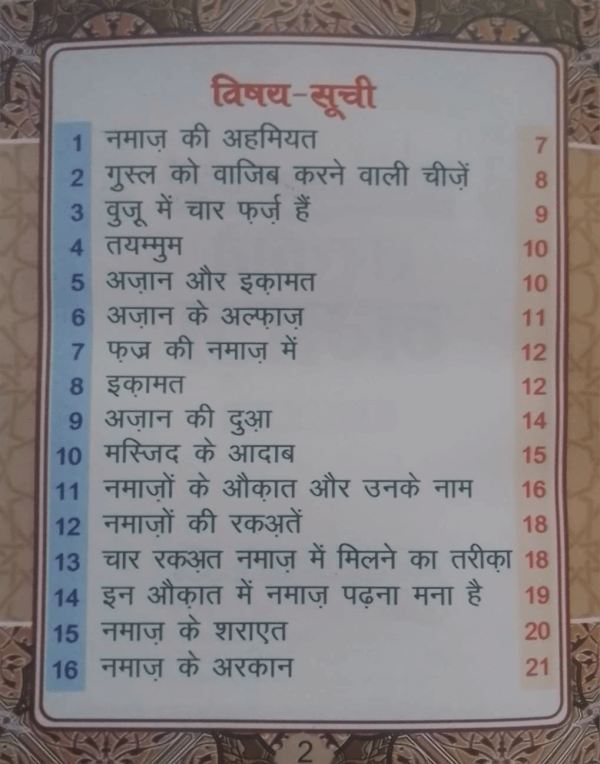 विषय-सूची
1 नमाज़ की अहमियत 7
2 गुस्ल को वाजिब करने वाली चीज़ें 8
3 वुजू में चार फ़र्ज़ हैं 9
4 तयम्मुम 10
5 अज़ान और इक़ामत 10
6 अज़ान के अल्फ़ाज़ 11
7 फ़ज्र की नमाज़ में 12
8 इक़ामत 12
9 अज़ान की दुआ़ 14
10 मस्जिद के आदाब 15
11 नमाज़ों के औक़ात और उनके नाम 16
12 नमाज़ों की रकअ़तें 18
13 चार रकअ़त नमाज़ में मिलने का तरीक़ा 18
14 इन औक़ात में नमाज़ पढ़ना मना है 19
15 नमाज़ के शराएत 20
16 नमाज़ के अरकान 21
2